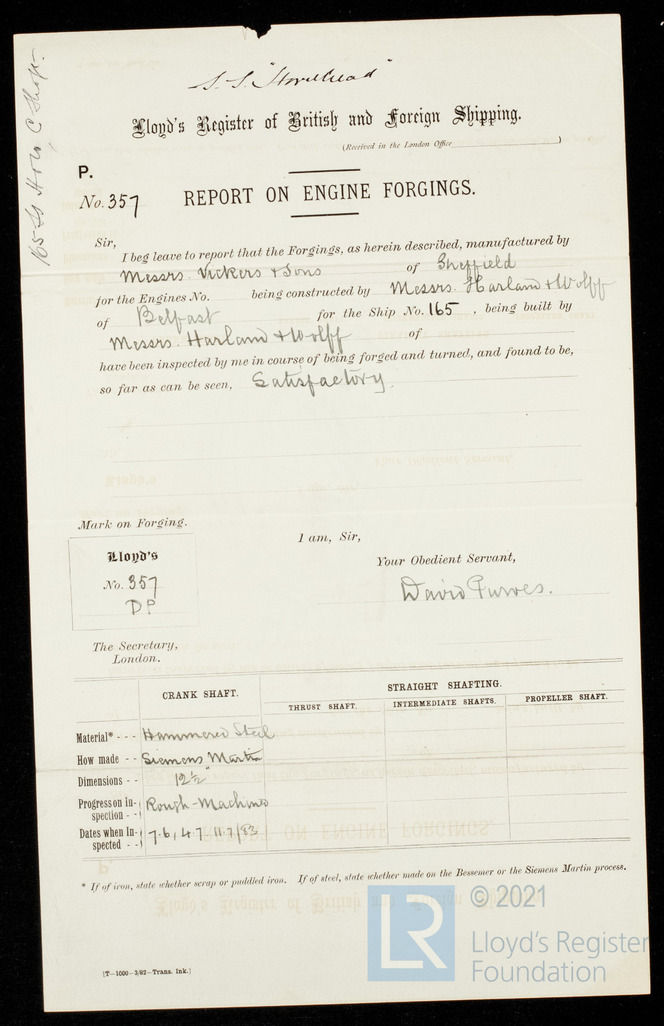 S.S. "Horsehead"
Lloyd's Register of British and Foreign Shipping.
(Received in the London Office )
P.
No. 357
REPORT ON ENGINE FORGINGS.
Sir,
I beg leave to report that the Forgings, as herein described, manufactured by
Messrs. Vickers & Sons of Sheffield
for the Engines No. being constructed by Messrs. Harland & Wolff
of Belfast for the Ship No. 165 , being built by
Messrs. Harland & Wolff of
have been inspected by me in course of being forged and turned, and found to be,
so far as can be seen, Satisfactory.
Mark on Forging.
Lloyd's
No. 357
DP
I am, Sir,
Your Obedient Servant,
David Purves.
The Secretary,
London.
CRANK SHAFT.
STRAIGHT SHAFTING.
THRUST SHAFT. INTERMEDIATE SHAFTS. PROPELLER SHAFT.
Material* - - - Hammered Steel
How made - - Siemens Martin
Dimensions - - 12½"
Progress on In-
spection - - Rough-Machined
Dates when In-
spected - - 7.6, 4.7, 11.7/83
* If of iron, state whether scrap or puddled iron. If of steel, state whether made on the Bessemer or the Siemens Martin process.
[T—1000—3/82—Trans. Ink.]
LR
© 2021
Lloyd's Register
Foundation